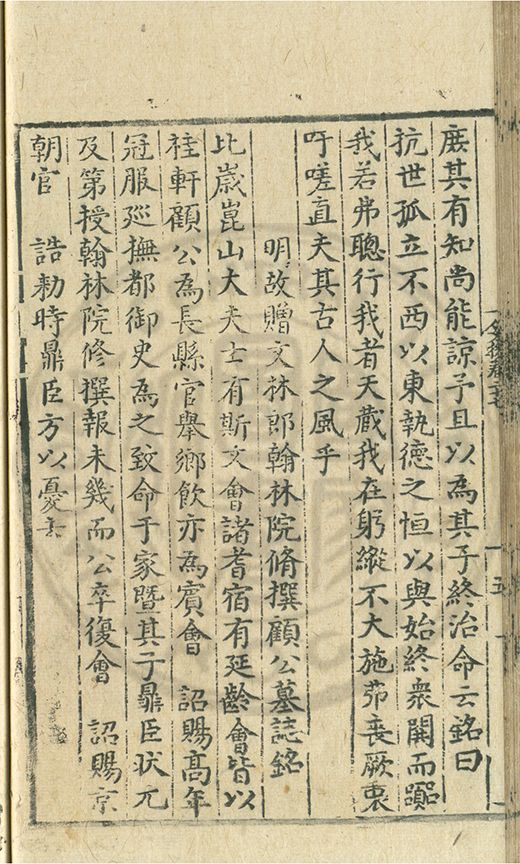 庶其有知尚能諒予且以為其子終治命云銘曰
抗世孤立不西以東執德之恒以與始終衆閧而躋
我若弗聰行我者天戴我在躬縱不大施茆喪厥衷
吁嗟直夫其古人之風乎
明故贈文林郎翰林院脩撰顧公墓誌銘
比歲崑山大夫士有斯文會諸耆宿有延齡會皆以
桂軒顧公為長縣官舉鄉飲亦為賓會 詔賜高年
冠服巡撫都御史為之致命于家暨其子鼎臣狀元
及第授翰林院修撰報未幾而公卒復會 詔賜京
朝官 誥勑時鼎臣方以憂去